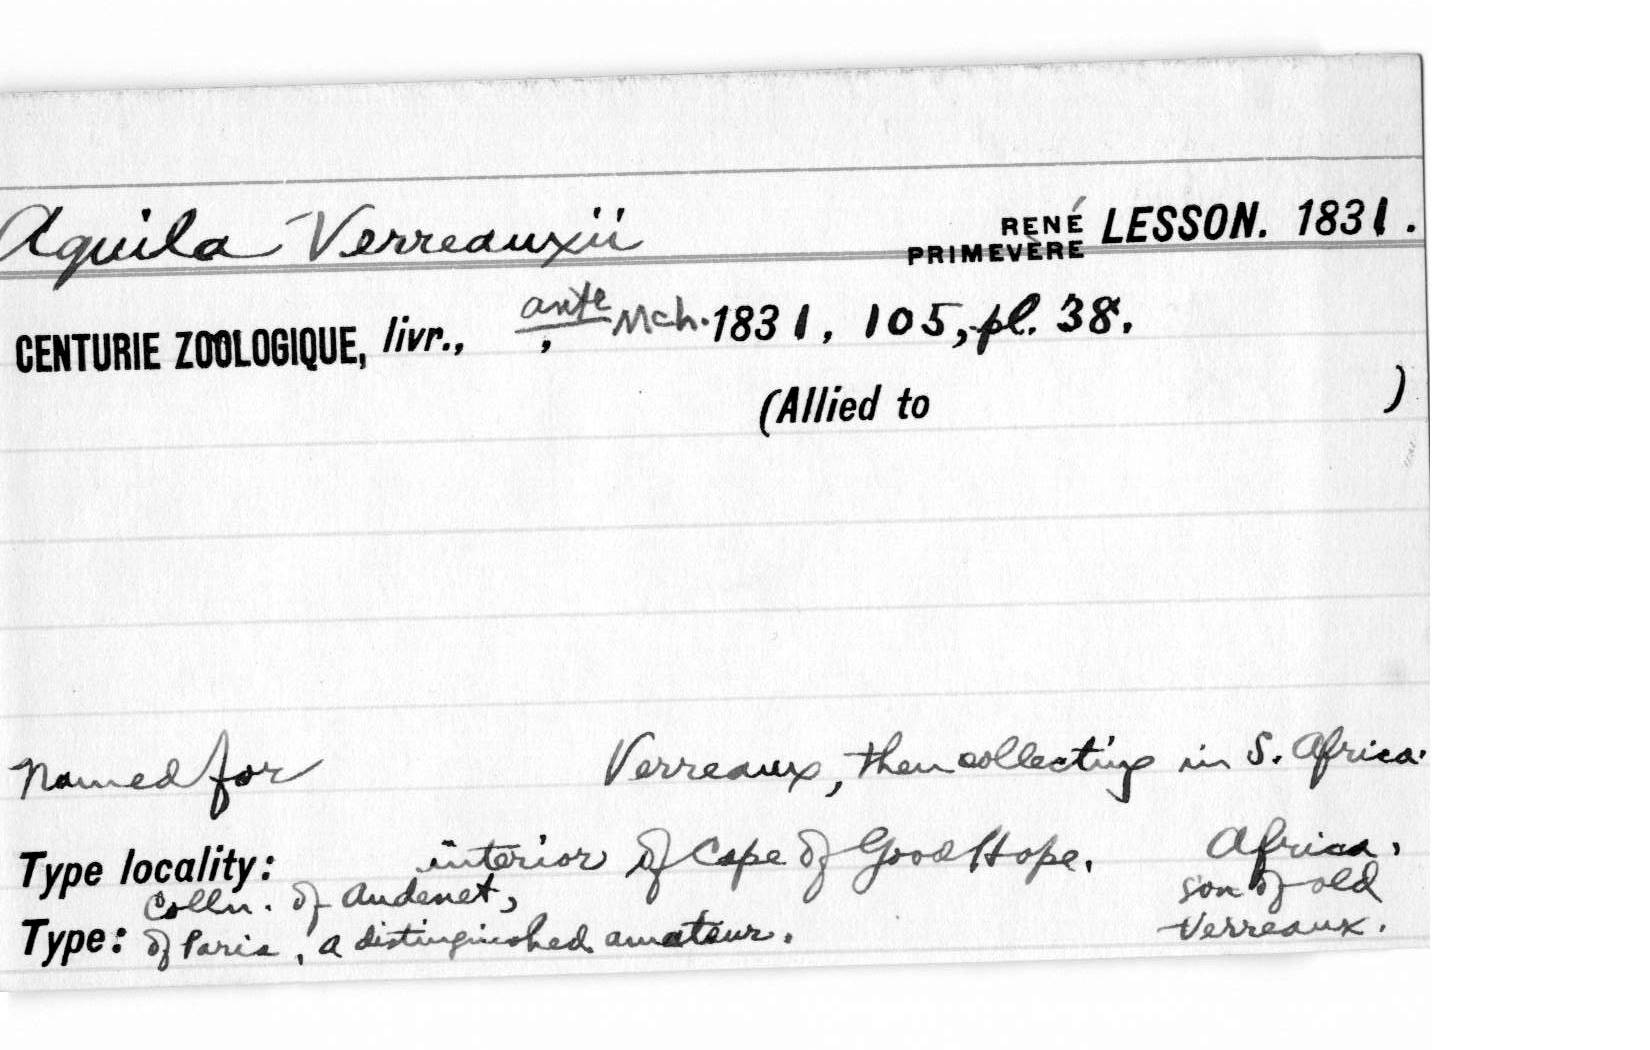 Aquila Verreauxii RENÉ PRIMEVÈRE LESSON. 1831.
CENTURIE ZOOLOGIQUE, livr., , ante Mch. 1831, 105, pl. 38.
(Allied to )
Named for Verreaux, then collecting in S. Africa.
Type locality: interior of Cape of Good Hope. Africa.
Colln. of Audenet, son of old
Type: of Paris, a distinguished amateur. Verreaux.